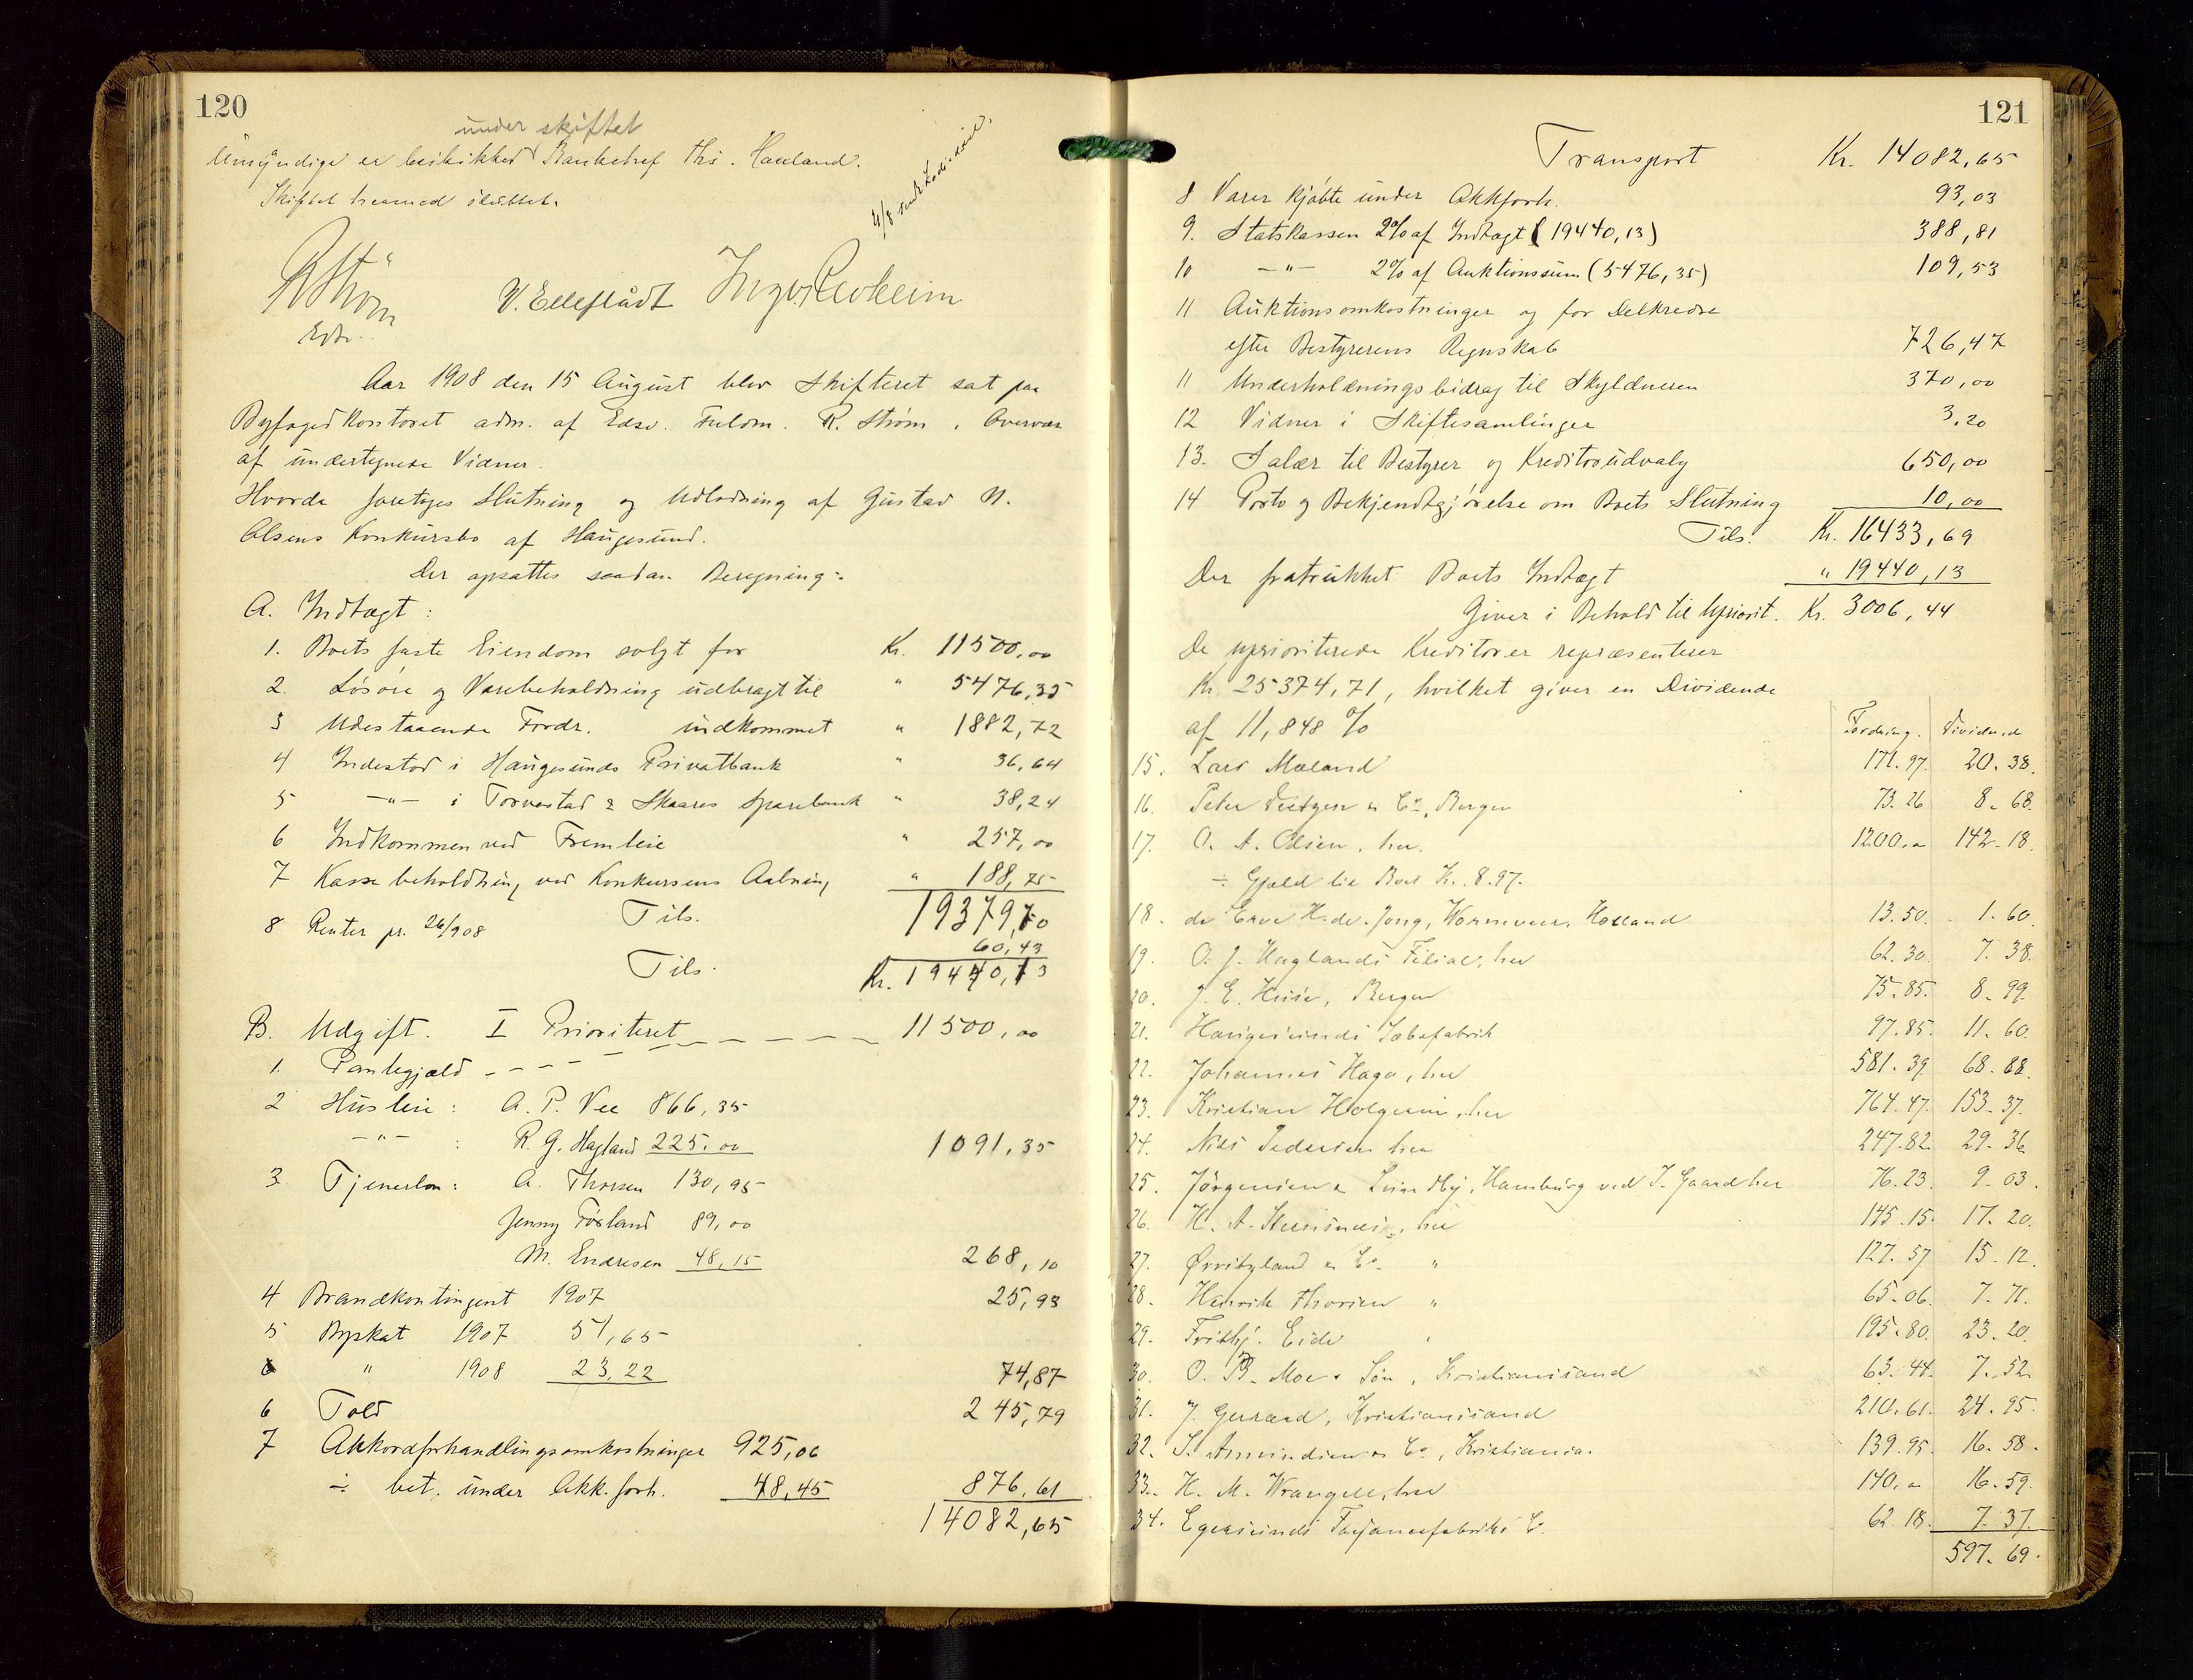 120
under skiftet
Umyndige er beskikket Bankchef Ths. Hauland.
Skiftet hermed sluttet.
4/8 sendt
RStrøm V. Elleflådt Ingv. Revheim
Edsv.
Aar 1908 den 15 August blev Skifteret sat paa
Byfogedkontoret adm. af Edsv. Fuldm. R. Strøm i Overvær
af undertegnede Vidner.
Hvorda foretoges Slutning og Udlodning af Gustav N.
Olsens Konkursbo af Haugesund.
Der opsattes saadan Beregning:
A. Indtægt:
1. Boets faste Eiendom solgt for Kr. 11500,00
2. Løsøre og Varebeholdning udbragt til " 5476,35
3 Udestaaende Fordr. indkommet " 1882,72
4 Indestod i Haugesunds Privatbank " 36,64
5 -"- i Torvestad & Skaares Sparebank " 38,24
6 Indkommen ved Fremleie " 257,00
7 Kassebeholdning ved Konkursens Aabning " 188,75
Tils. 19379,70
8 Renter pr. 26/908 60,43
Tils. Kr. 19440,13
B. Udgift. I Prioriteret
1. Pantegjæld - - - 11500,00
2 Husleie: A. P. Vee 866,35
-"- : R. G. Hagland 225,00 1091,35
3. Tjenerløn: A. Thorsen 130,95
Jenny Førland 89,00
M. Endresen 48,15 268,10
4 Brandkontingent 1907 25,93
5 Byskat 1907 51,65
6 " 1908 23,22 74,87
6 Told 245,79
7 Akkordforhandlingsomkostninger 925,06
÷ bet. under Akk.forh. 48,45 876,61
14082,65
121
Transport Kr. 14082,65
8 Varer kjøbte under Akkforh. 93,03
9. Statskassen 2% af Indtægt (19440,13) 388,81
10 -"- 2% af Auktionssum (5476,35) 109,53
11 Auktionsomkostninger og for Delkredre
efter Bestyrerens Regnskab 726,47
11 Underholdningsbidrag til Skyldneren 370,00
12 Vidner i Skiftesamlinger 3,20
13. Salær til Bestyrer og Kreditorudvalg 650,00
14 Porto og Bekjendtgjørelse om Boets Slutning 10,00
Tils. Kr. 16433,69
Der fratrukket Boets Indtægt " 19440,13
Giver i Behold til Upriorit. Kr. 3006,44
De uprioriterede Kreditorer repræsenterer
Kr. 25374,71, hvilket giver en Dividende
af 11,848 % Fordring. Dividende
15. Lars Mæland 171.97. 20.38.
16. Peter & Co, Bergen 73.26 8.68.
17. O. A. Olsen, her. 1200.- 142.18.
÷ Gjæld til Boet Kr. 8.97.
18. de Erve H. de Jong, Wormveer, Holland 13.50. 1.60.
19. O. J. Haglands Filial, her 62.30. 7.38.
20. J. E. Huse, Bergen 75.85. 8.99.
21. Haugesunds Sæbefabrik 97.85. 11.60.
22. Johannes Haga, her 581.39. 68.88.
23. Kristian Holgersen, her 764.47. 153.37.
24. Nils Pedersen her 247.82. 29.36.
25. Jörgensen & , Hamburg ved J. Gaard her 76.23. 9.03.
26. H. A. , her 145.15. 17.20.
27. & Co. " 127.57 15.12.
28. Henrik Thorsen " 65.06. 7.71.
29. Frithj. Eide " 195.80. 23.20.
30. O. B. Moe & Søn, Kristianssand 63.44. 7.52.
31. J. Gerrard, Kristianssand 210.61. 24.95.
32. S. Amundsen & Co, Kristiania. 139.95. 16.58.
33. H. M. Wrangell, her 140.- 16.59.
34. Egersunds Fayancefabriks Co. 62.18. 7.37.
597.69.